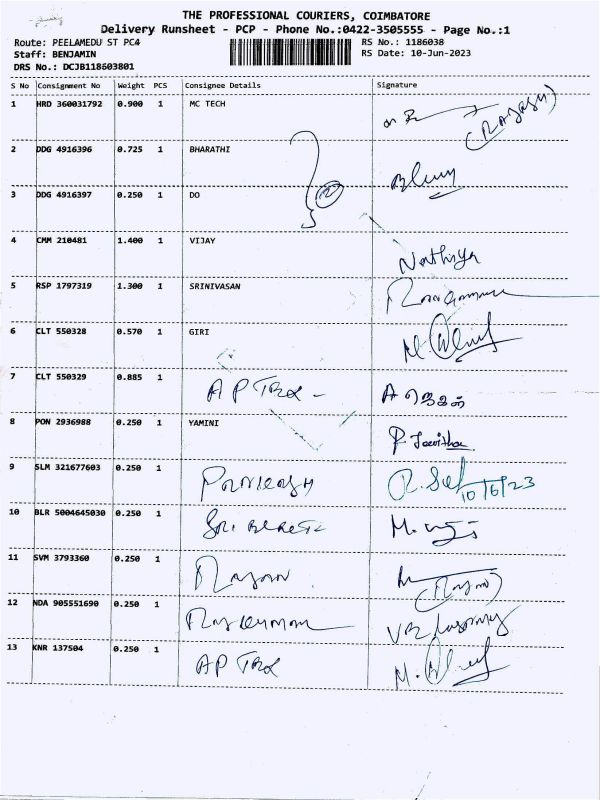 THE PROFESSIONAL COURIERS, COIMBATORE
Delivery Runsheet - PCP - Phone No.:0422-3505555 - Page No.:1
Route: PEELAMEDU ST PC4
RS No.: 1186038
Staff: BENJAMIN
RS Date: 10-Jun-2023
DRS No.: DCJB118603801
S No Consignment No Weight PCS Consignee Details Signature
1 HRD 360031792 0.900 1 MC TECH
2 DDG 4916396 0.725 1 BHARATHI
3 DDG 4916397 0.250 1 DO
4 CMM 210481 1.400 1 VIJAY Nathiya
5 RSP 1797319 1.300 1 SRINIVASAN
6 CLT 550328 0.570 1 GIRI
7 CLT 550329 0.885 1 AP TRX -
8 PON 2936988 0.250 1 YAMINI
9 SLM 321677603 0.250 1 10/6/23
10 BLR 5004645030 0.250 1
11 SVM 3793360 0.250 1
12 NDA 905551690 0.250 1
13 KNR 137504 0.250 1 AP TRX